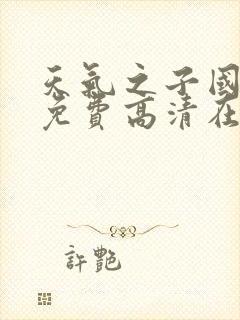 天氣之子國
免費高清在
許艷